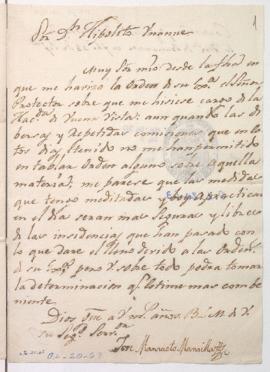 1
Sor Dn Hipolito Unanue
Muy Sor mio: desde la fecha en
que me havisó la Orden de su Exa el Señor
Protector sobre que me hisiese cargo de la
Hacda de Buena Vista: aun quando las di
bersas y Repetidas comiciones que en es
tos dias é tenido no me han permitido
en tablar orden alguno sobre aquella
materia; me parese que las medidas
que tengo meditadas y boy a practicar
en el dia seran mas seguras y libres
de las incidencias que han pasado con
lo que dare el lleno devido a las Orden.
de su Exa pero sobre todo podra tomar
la determinacion qe estime mas combe
niente.
Dios gue a V. ms. años. B. L. M. de V.
su Sego Servr
José Manuel